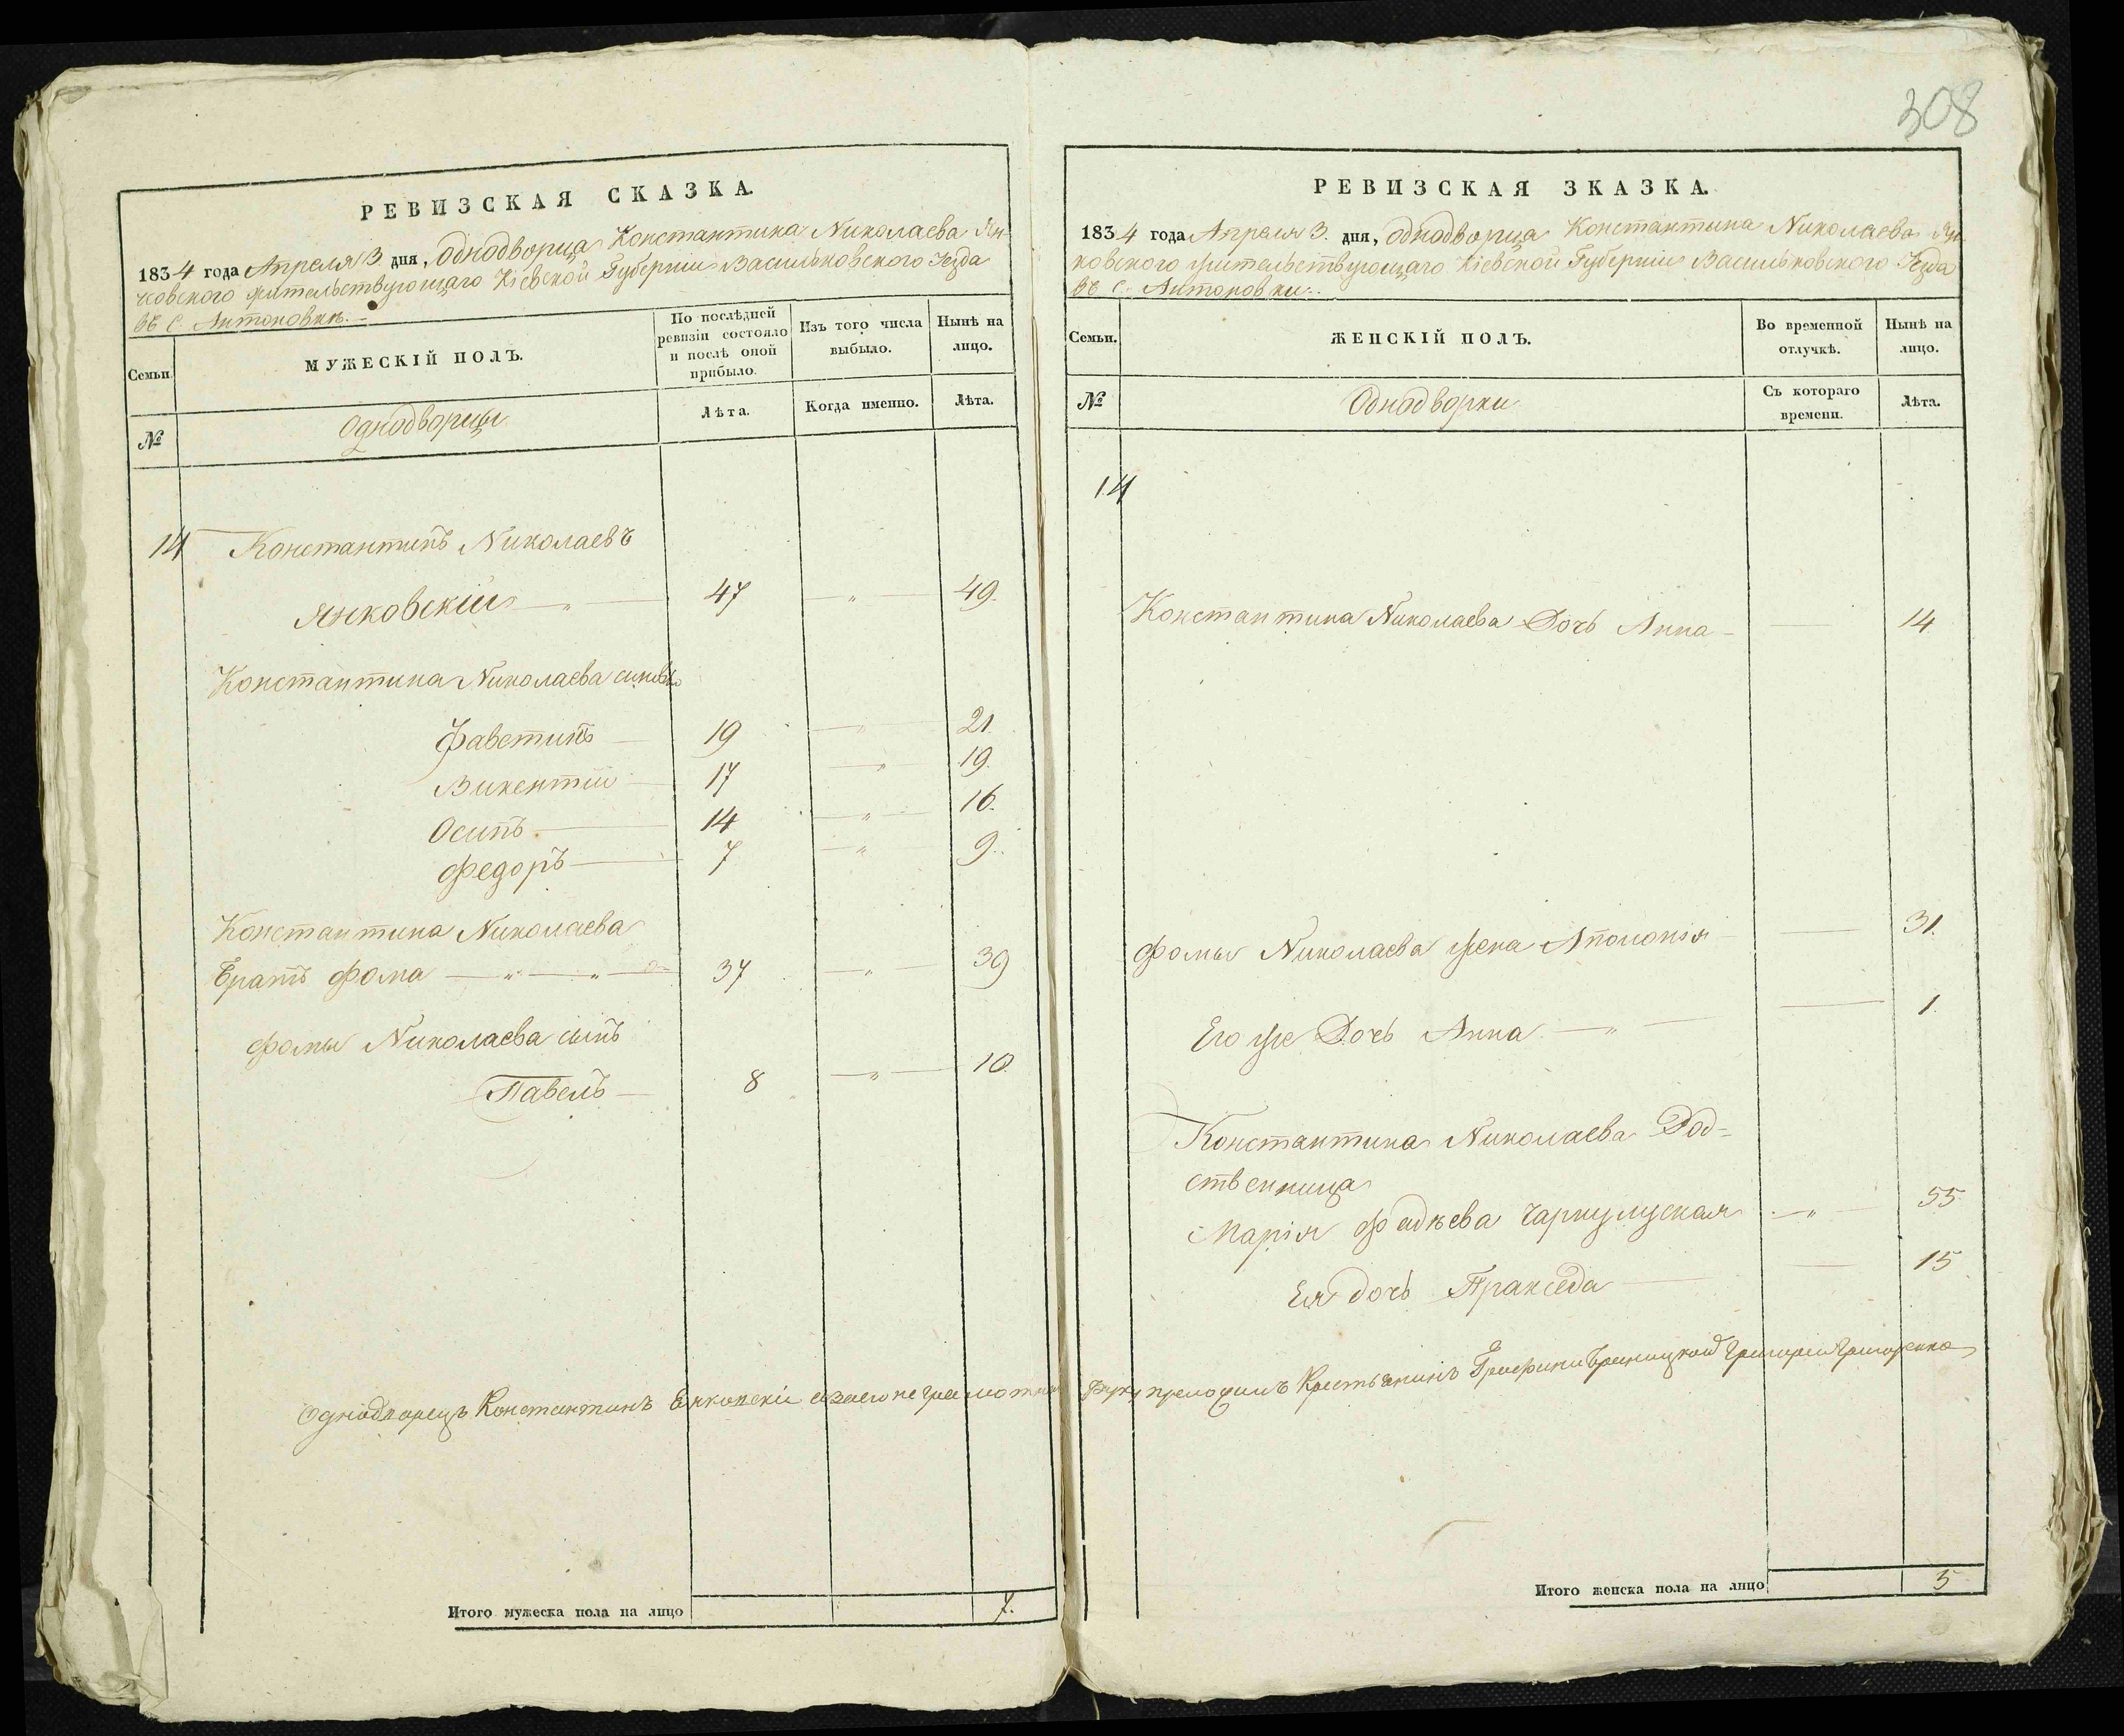 308
РЕВИЗСКАЯ СКАЗКА.
1834 года Апреля 3 дня, Однодворца Константина Николаева Ян-
ковского жительствующаго Кіевской Губерніи Васильковского Уезда
въ с. Антоновки.
Семьи.
МУЖЕСКІЙ ПОЛЪ.
По послѣдней ревизіи состояло и послѣ оной прибыло.
Изъ того числа выбыло.
Нынѣ на лицо.
№
Однодворцы
Лѣта.
Когда именно.
Лѣта.
14 Константинъ Николаевъ
Янковскій 47 " 49.
Константина Николаева сыновья
Фавстинъ 19 " 21.
Викентій 17 " 19.
Осипъ 14 " 16.
Федоръ 7 " 9.
Константина Николаева
Братъ Фома 37 " 39
Фомы Николаева сынъ
Павелъ 8 " 10.
Итого мужеска пола на лицо 7.
РЕВИЗСКАЯ ЗКАЗКА.
1834 года Апреля 3. дня, Однодворца Константина Николаева Ян-
ковского жительствующаго Кіевской Губерніи Васильковского Уезда
въ с. Антоновки.
Семьи.
ЖЕНСКІЙ ПОЛЪ.
Во временной отлучкѣ.
Нынѣ на лицо.
№
Однодворки
Съ котораго времени.
Лѣта.
14
Константина Николаева Дочь Анна 14
Фомы Николаева жена Аполонія 31.
Его же Дочь Анна " 1.
Константина Николаева Род=
ственница
Марія Фадѣева 55
Ея дочь Пракседа 15
Однодворецъ Константинъ Енковскіи а заего не грамотна руку преложилъ Крестьянинъ Графини Браницкой Григорій Григоренко
Итого женска пола на лицо 5